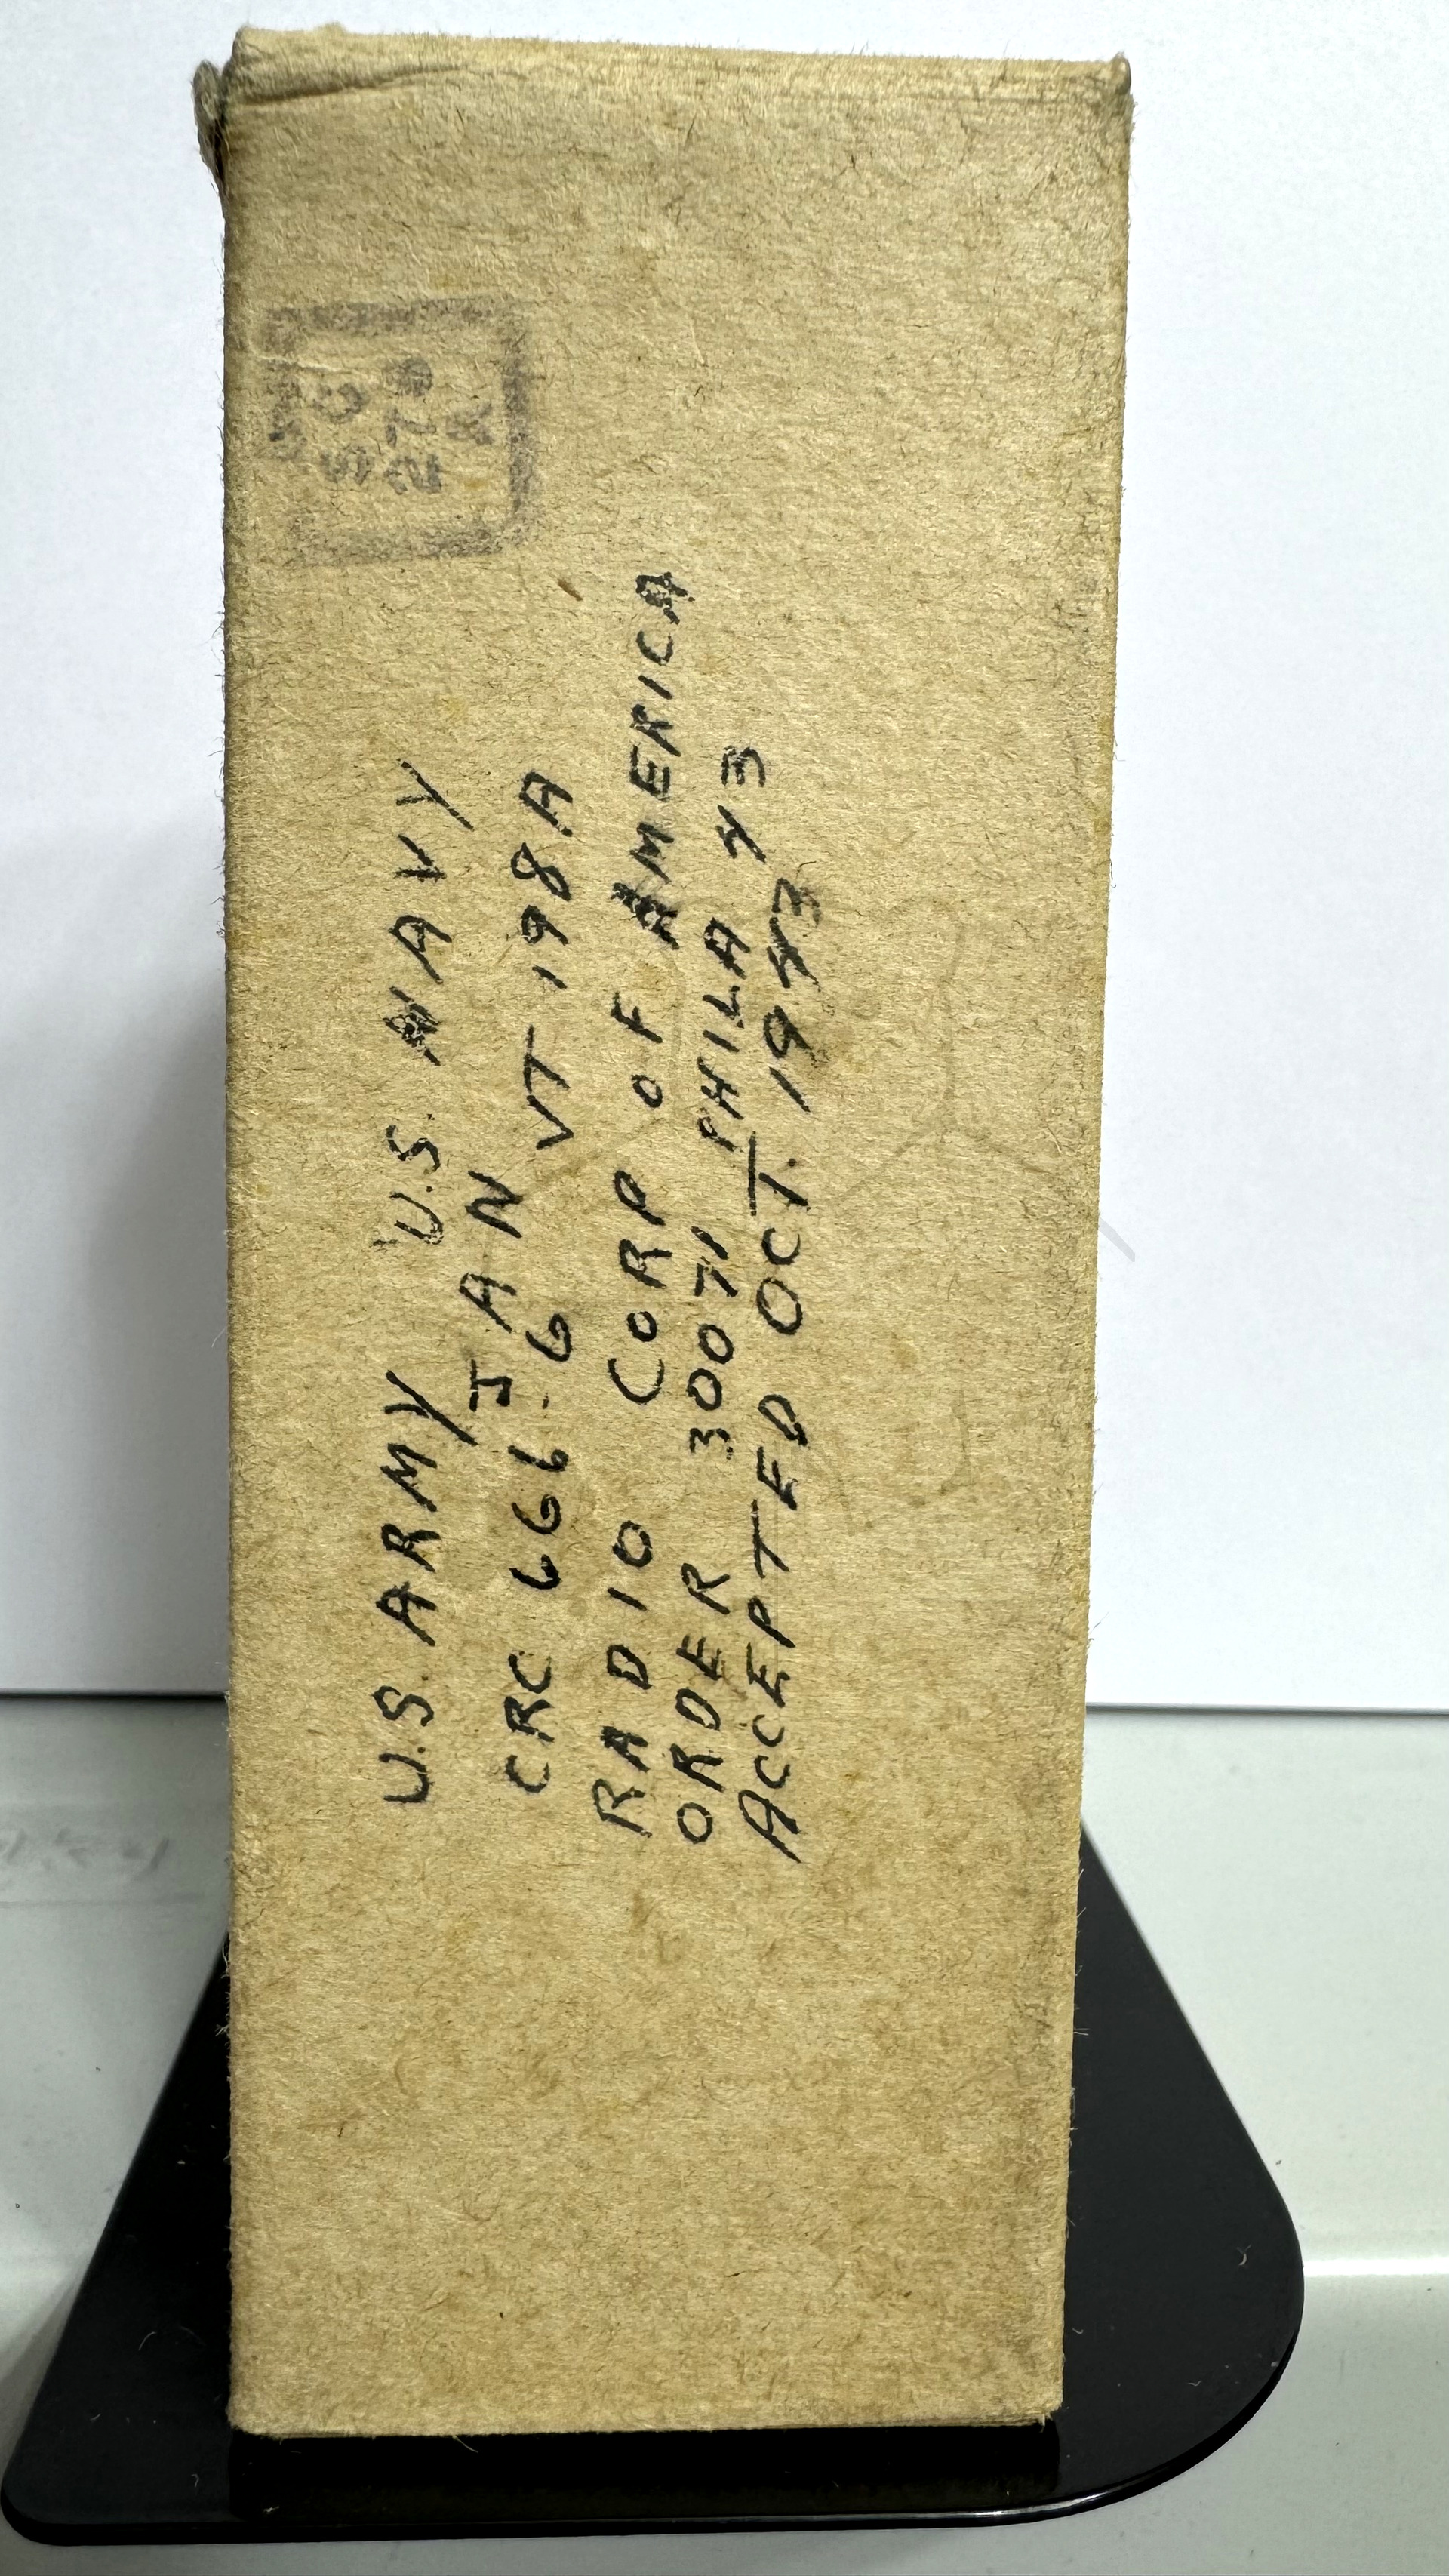 U.S. ARMY U.S. NAVY
JAN
CRC 6G6-G VT 198A
RADIO CORP OF AMERICA
ORDER 30071 PHILA 43
ACCEPTED OCT. 1943